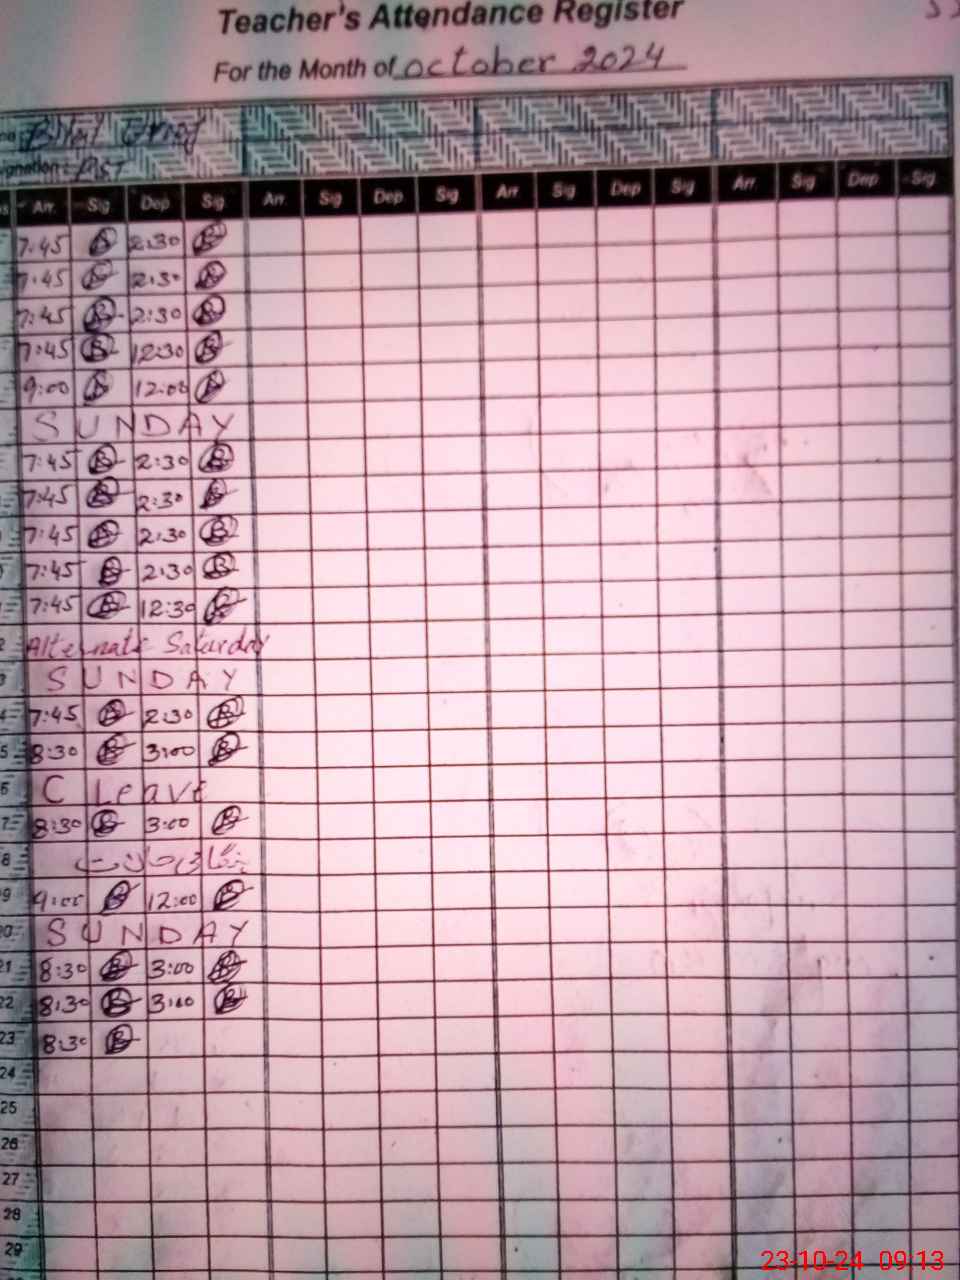 Teacher's Attendance Register
For the Month of october 2024
Bilal
gnation: PST
Arr. Sig Dep Sig Arr. Sig Dep Sig Arr. Sig Dep Sig Arr. Sig Dep Sig
7:45 2:30
7:45 2:30
7:45 2:30
7:45 12:30
9:00 12:00
SUNDAY
7:45 2:30
7:45 2:30
7:45 2:30
7:45 2:30
7:45 12:30
2 Alternate Saturday
3 SUNDAY
4 7:45 2:30
5 8:30 3:00
6 C Leave
7 8:30 3:00
8
9 9:00 12:00
20 SUNDAY
21 8:30 3:00
22 8:30 3:00
23 8:30
24
25
26
27
28
29
23-10-24 09:13